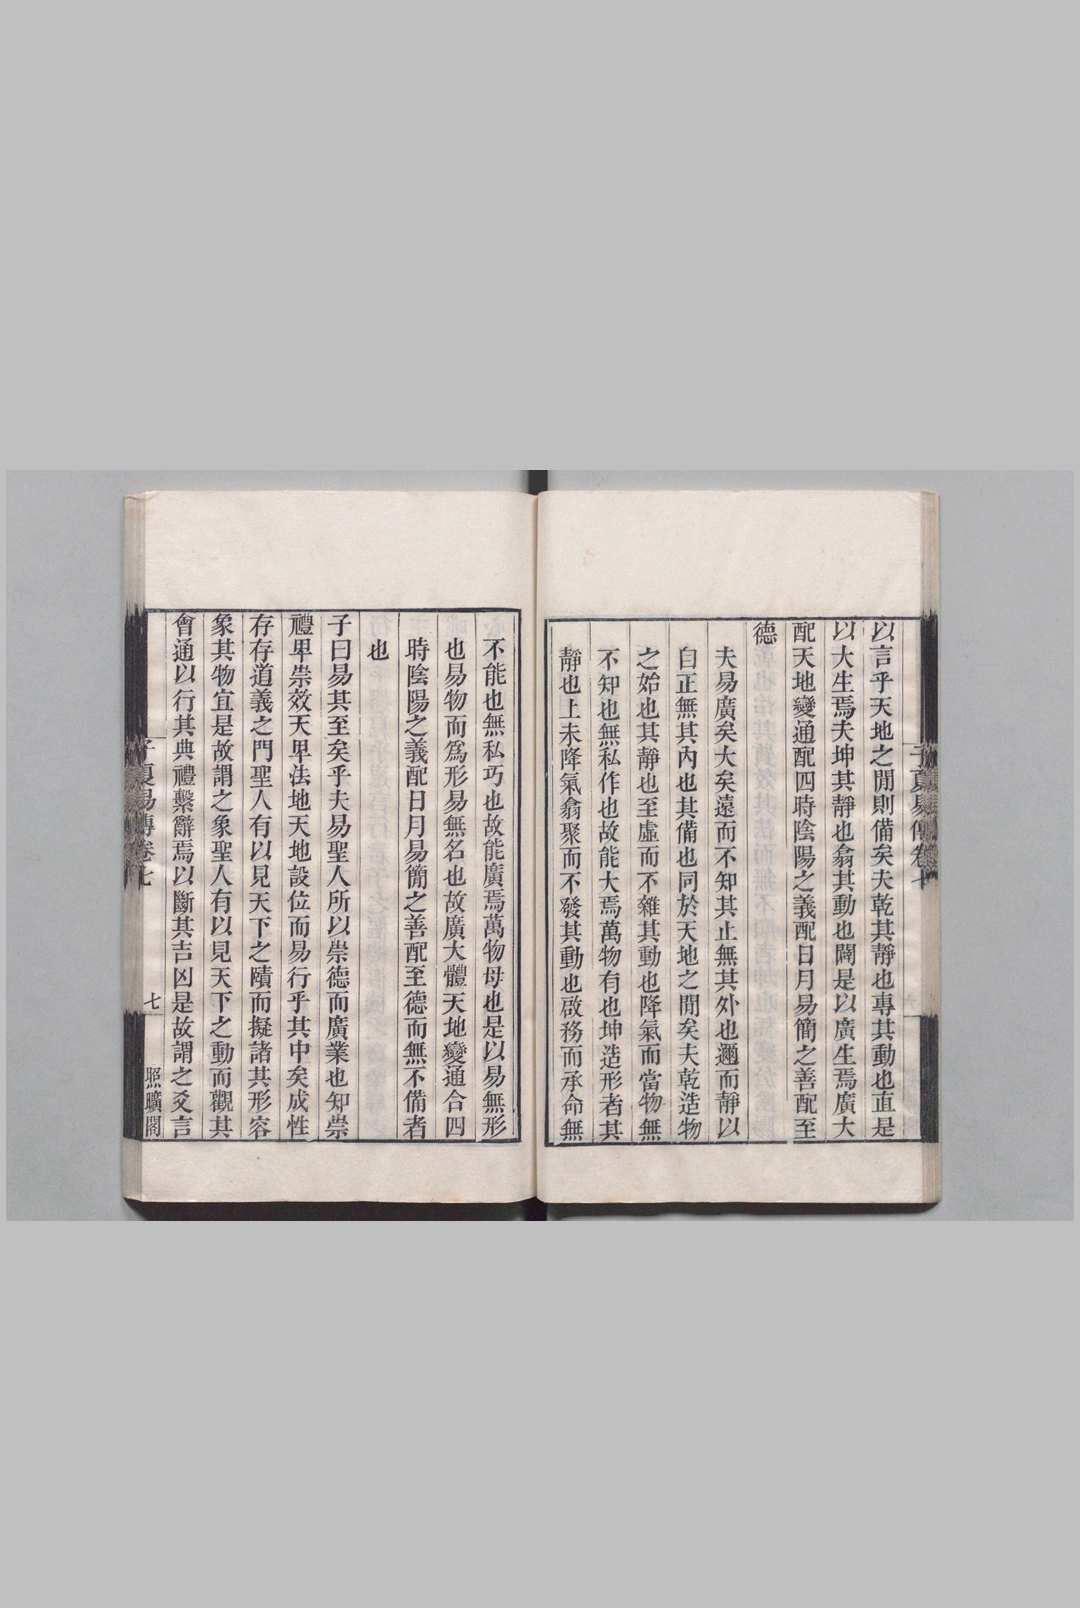 以言乎天地之閒則備矣夫乾其靜也專其動也直是
以大生焉夫坤其靜也翕其動也闢是以廣生焉廣大
配天地變通配四時陰陽之義配日月易簡之善配至
德
夫易廣矣大矣遠而不知其止無其外也邇而靜以
自正無其內也其備也同於天地之閒矣夫乾造物
之始也其靜也至虛而不雜其動也降氣而當物無
不知也無私作也故能大焉萬物有也坤造形者其
靜也上未降氣翕聚而不發其動也啟務而承命無
不能也無私巧也故能廣焉萬物母也是以易無形
也易物而爲形易無名也故廣大體天地變通合四
時陰陽之義配日月易簡之善配至德而無不備者
也
子曰易其至矣乎夫易聖人所以崇德而廣業也知崇
禮卑崇效天卑法地天地設位而易行乎其中矣成性
存存道義之門聖人有以見天下之賾而擬諸其形容
象其物宜是故謂之象聖人有以見天下之動而觀其
會通以行其典禮繫辭焉以斷其吉凶是故謂之爻言
子夏易傳卷七
七
照曠閣